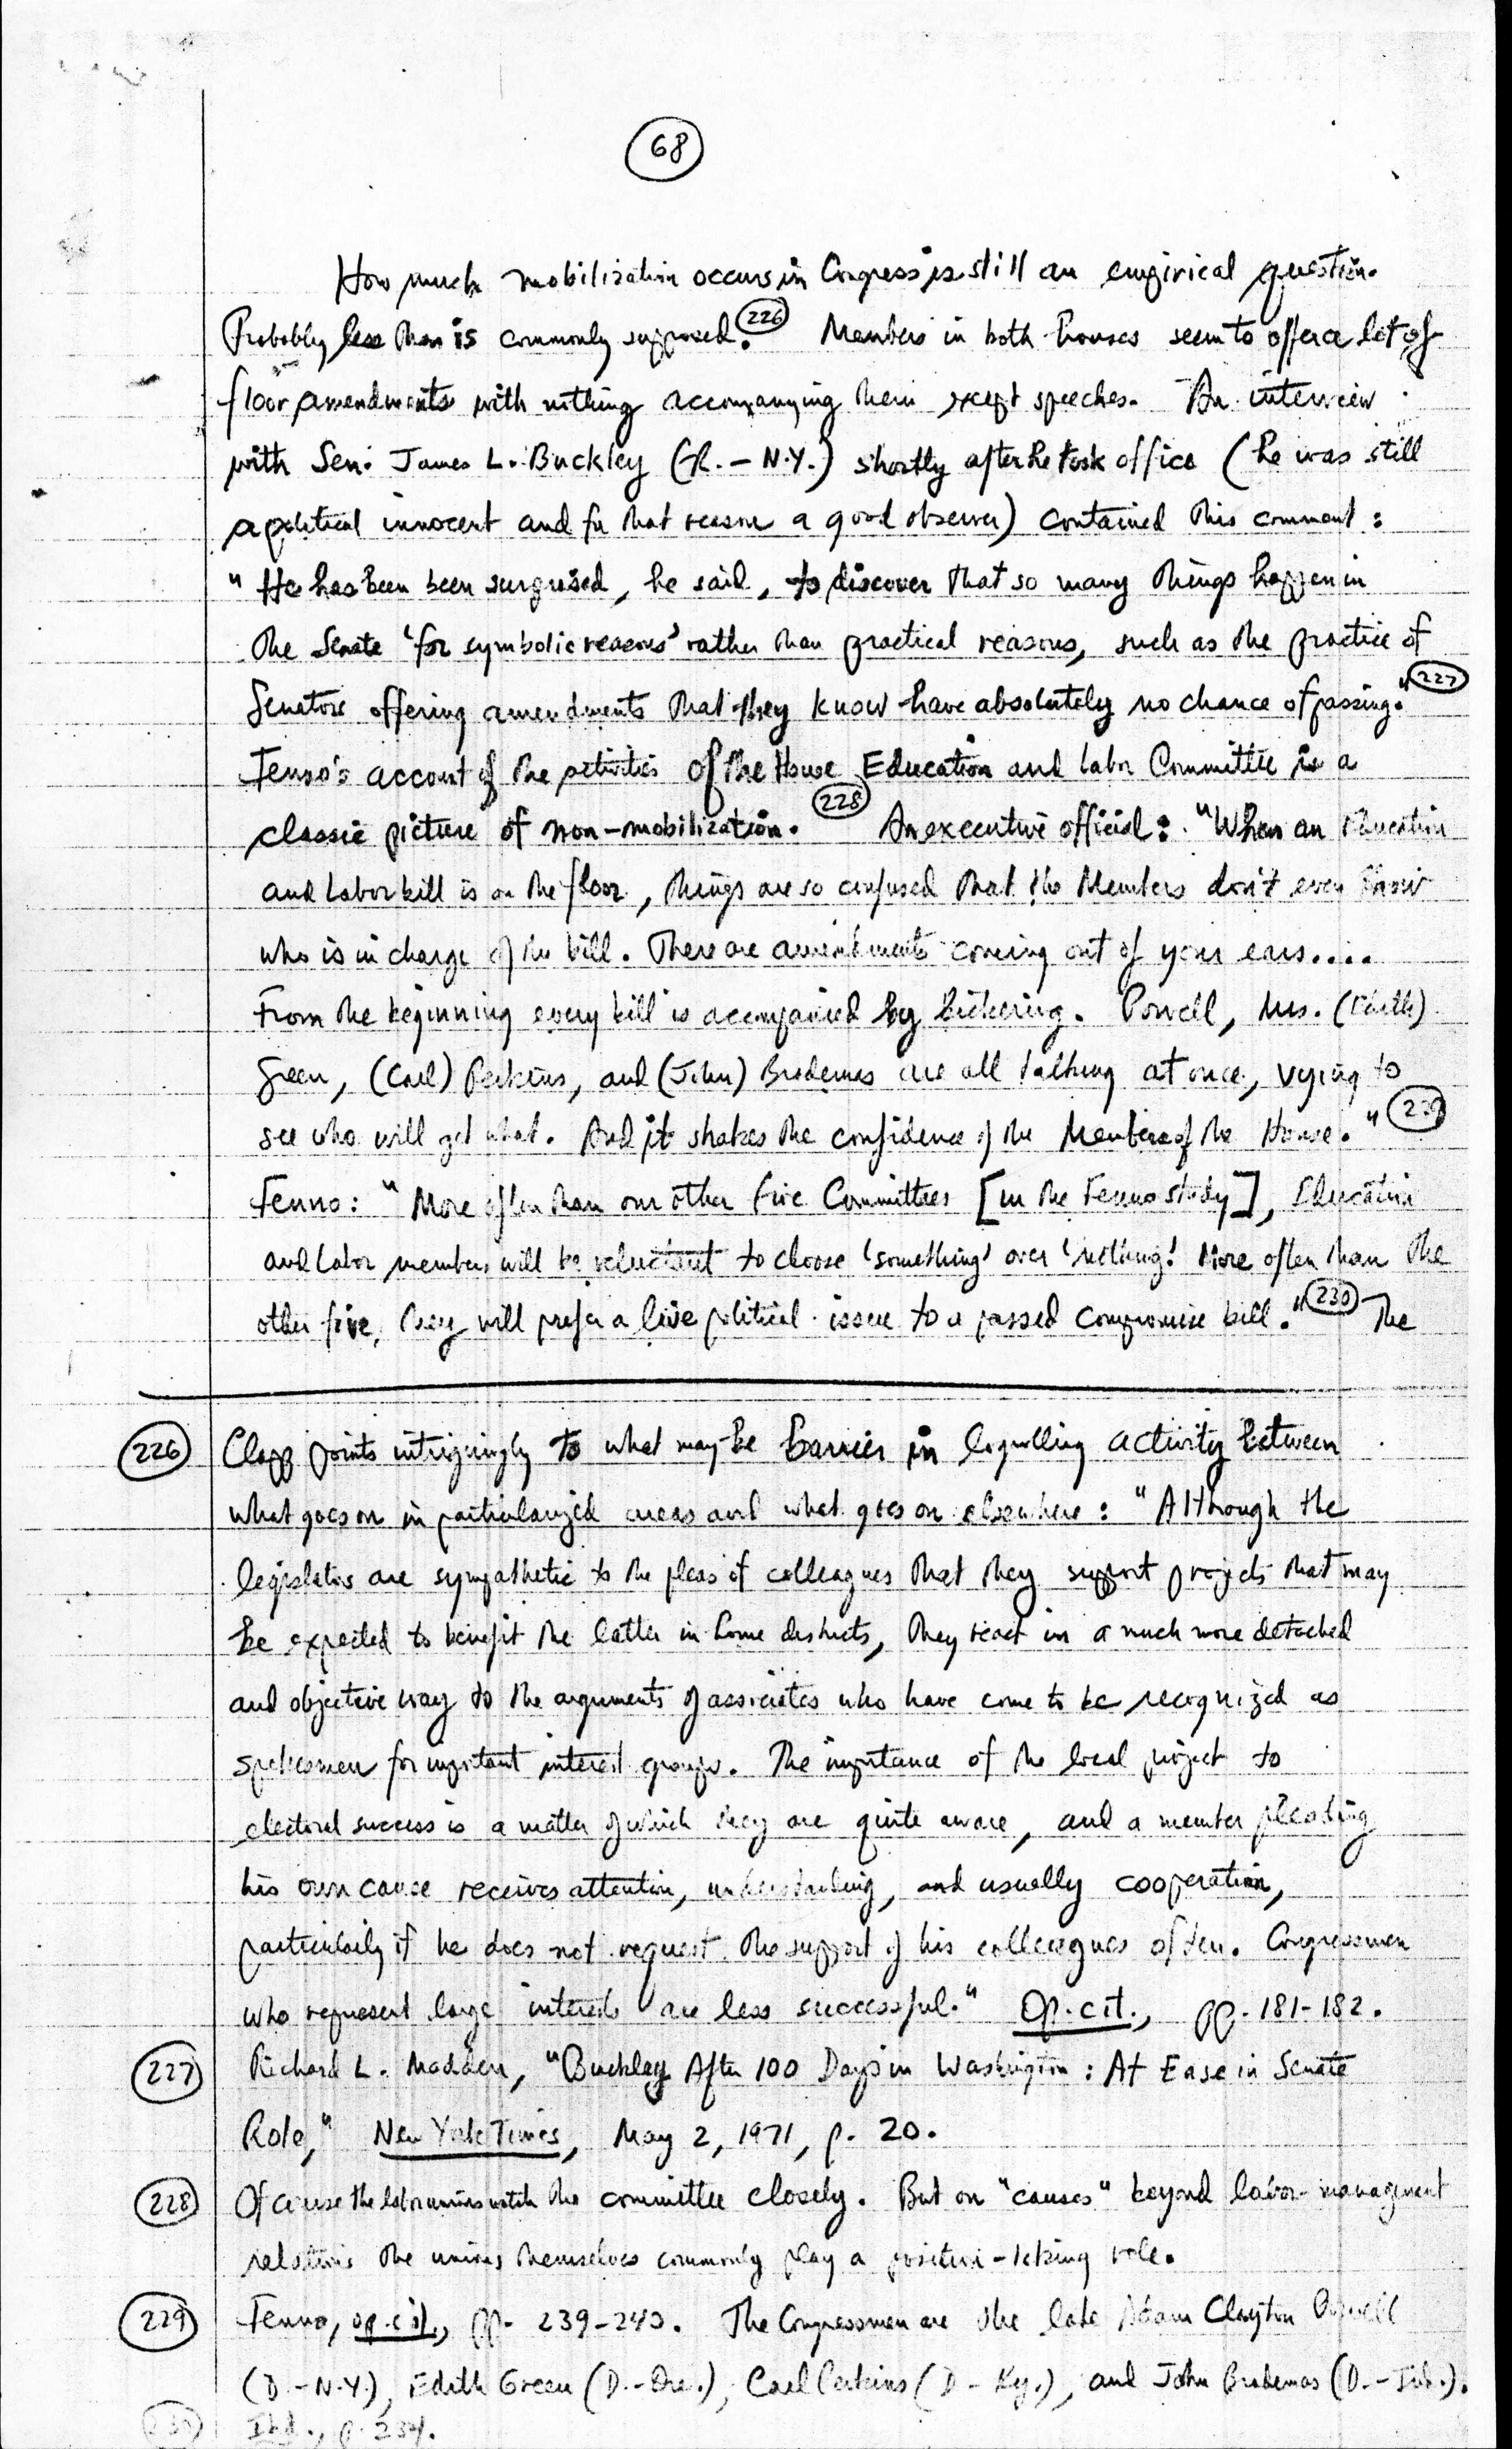 68
How much mobilization occurs in Congress is still an empirical question.
Probably less than is commonly supposed. 226 Members in both houses seem to offer a lot of
floor amendments with nothing accompanying them except speeches. An interview
with Sen. James L. Buckley (R.-N.Y.) shortly after he took office (he was still
a political innocent and for that reason a good observer) contained this comment:
"He has been been surprised, he said, to discover that so many things happen in
the Senate 'for symbolic reasons' rather than practical reasons, such as the practice of
Senators offering amendments that they know have absolutely no chance of passing." 227
Fenno's account of the activities of the House Education and Labor Committee is a
classic picture of non-mobilization. 228 An executive official: "When an Education
and Labor bill is on the floor, things are so confused that the Members don't even know
who is in charge of the bill. There are amendments coming out of your ears....
From the beginning every bill is accompanied by bickering. Powell, Mrs. (Edith)
Green, (Carl) Perkins, and (John) Brademas are all talking at once, vying to
see who will get what. And it shakes the confidence of the Members of the House." 229
Fenno: "More often than our other five Committees [in the Fenno study], Education
and Labor members will be reluctant to choose 'something' over 'nothing.' More often than the
other five, they will prefer a live political issue to a passed compromise bill." 230 The
226 Clapp points intriguingly to what may be barrier in logrolling activity between
what goes on in particularized areas and what goes on elsewhere: "Although the
legislators are sympathetic to the pleas of colleagues that they support projects that may
be expected to benefit the latter in home districts, they react in a much more detached
and objective way to the arguments of associates who have come to be recognized as
spokesmen for important interest groups. The importance of the local project to
electoral success is a matter of which they are quite aware, and a member pleading
his own cause receives attention, understanding, and usually cooperation,
particularily if he does not request the support of his colleagues often. Congressmen
who represent large interests are less successful." Op. cit., pp. 181-182.
227 Richard L. Madden, "Buckley After 100 Days in Washington: At Ease in Senate
Role," New York Times, May 2, 1971, p. 20.
228 Of course the labor unions watch the committee closely. But on "causes" beyond labor-management
relations the unions themselves commonly play a position-taking role.
229 Fenno, op. cit., pp. 239-240. The Congressmen are the late Adam Clayton Powell
(D.-N.Y.), Edith Green (D.-Ore.), Carl Perkins (D-Ky.), and John Brademas (D.-Ind.).
230 Ibid., p. 234.